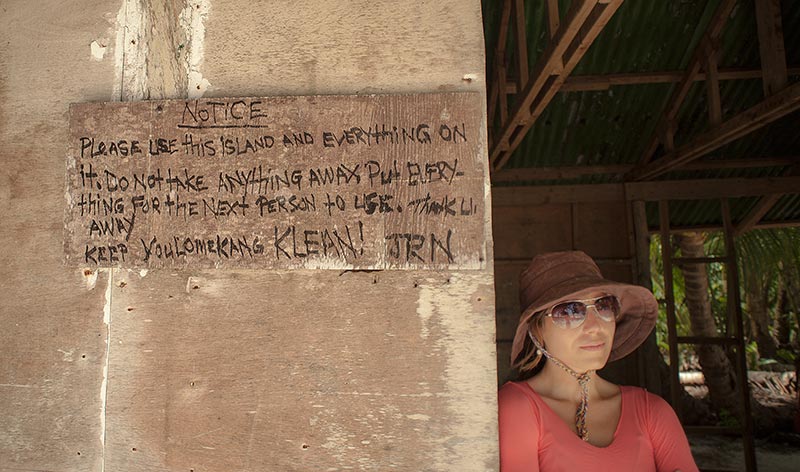 NOTICE
PLEASE USE tHIS ISLAND AND EVERYtHING ON
it. DO NOt tAKE ANYtHING AWAY. PUt EVERY-
tHING FOR tHE NEXt PERSON to USE. tHANK U.
AWAY
KEEP YOULOMEKANG KLEAN! JRN